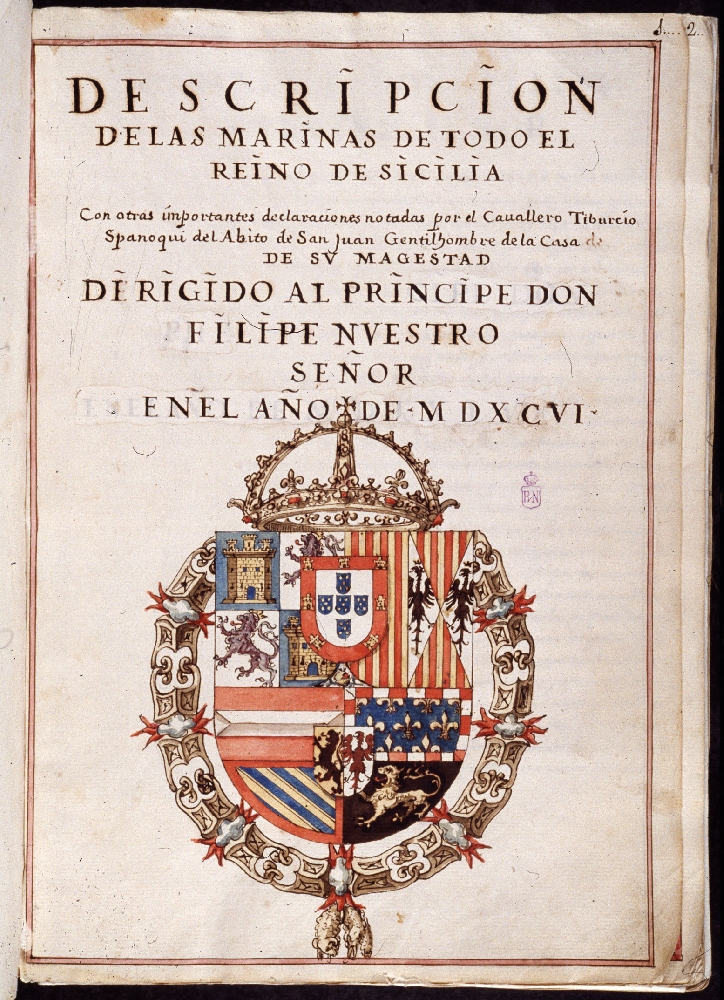 1.... 2.
DESCRIPCION
DE LAS MARINAS DE TODO EL
REINO DE SICILIA
Con otras importantes declaraciones notadas por el Cauallero Tiburcio
Spanoqui del Abito de San Juan Gentilhombre de la Casa de
DE SV MAGESTAD
DIRIGIDO AL PRINCIPE DON
FILIPE NVESTRO
SEÑOR
EN EL AÑO DE · M DXCVI ·
BN